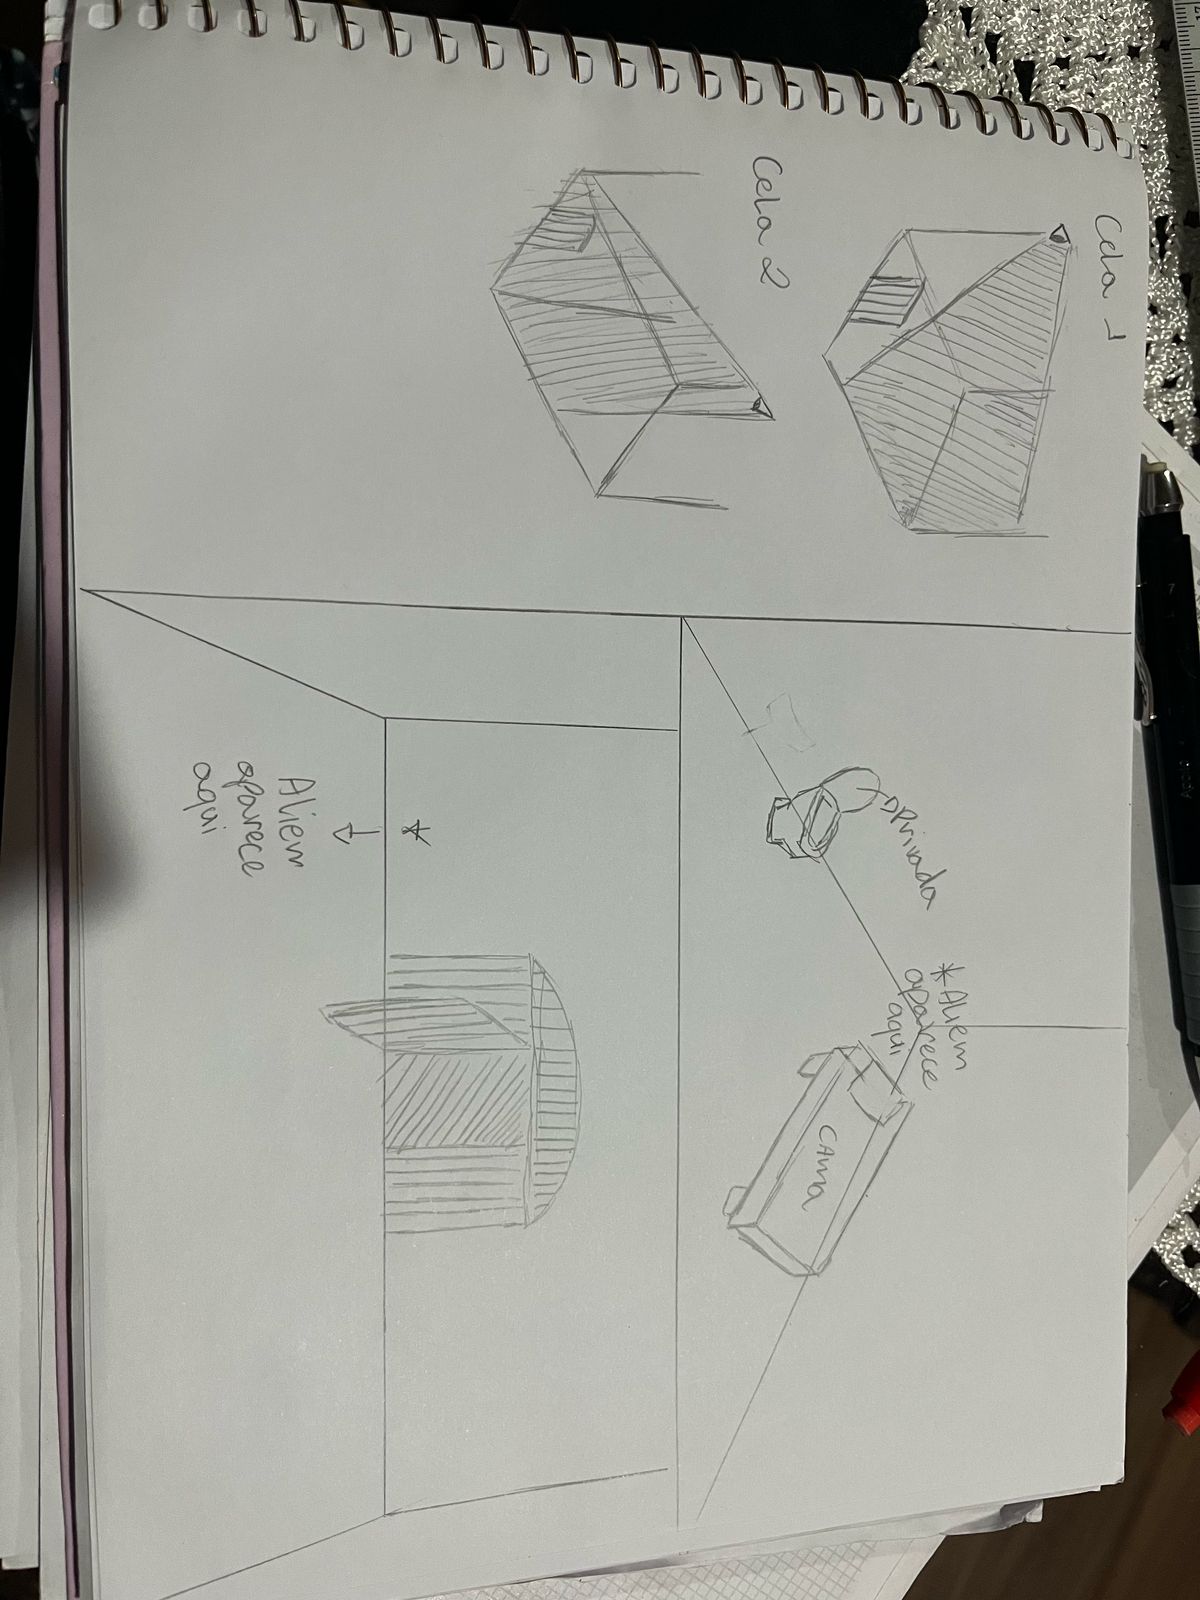 Cela 1
Cela 2
Privada
*Aliem
aparece
aqui
CAMA
*
Aliem
aparece
aqui